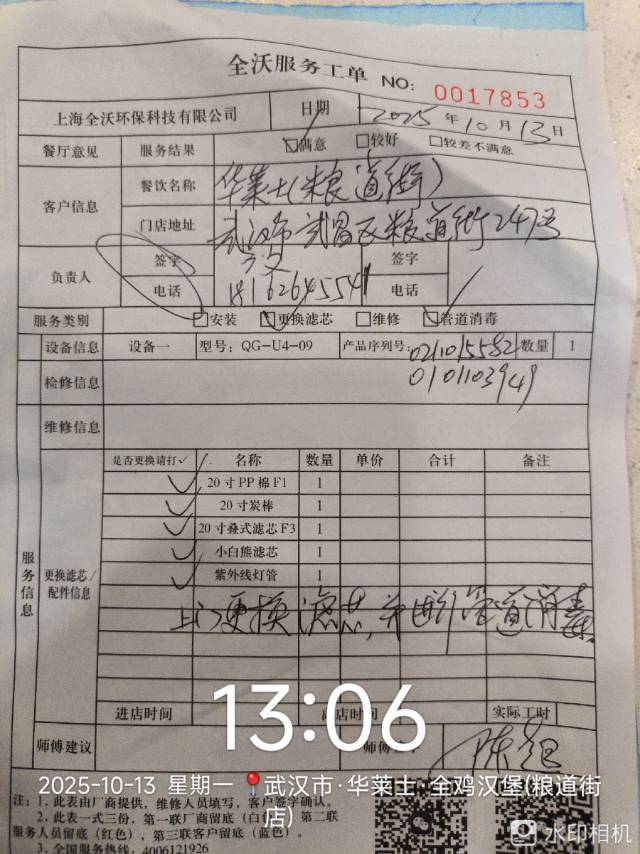 全沃服务工单 NO: 0017853
上海全沃环保科技有限公司 日期 2025年10月13日
餐厅意见 服务结果 ☑满意 □较好 □较差不满意
客户信息 餐饮名称 华莱士(粮道街)
门店地址 武汉市武昌区粮道街247号
负责人 签字 签字
电话 18162645541 电话
服务类别 □安装 ☑更换滤芯 □维修 ☑管道消毒
设备信息 设备一 型号: QG-U4-09 产品序列号: 0211015582 数量 1
0101103949
检修信息
维修信息
服务信息 更换滤芯/配件信息 是否更换请打✓ 名称 数量 单价 合计 备注
✓ 20寸PP棉F1 1
✓ 20寸炭棒 1
✓ 20寸叠式滤芯F3 1
✓ 小白熊滤芯 1
✓ 紫外线灯管 1
上门更换滤芯,并进行管道消毒.
进店时间 离店时间 实际工时
13:06
师傅建议 师傅
2025-10-13 星期一 武汉市·华莱士·全鸡汉堡(粮道街店)
注: 1. 此表由厂商提供, 维修人员填写, 客户签字确认。
2. 此表一式三份, 第一联厂商留底(白色) 第二联
服务人员留底(红色), 第三联客户留底(蓝色)。
3. 全国服务热线: 4006121926
水印相机